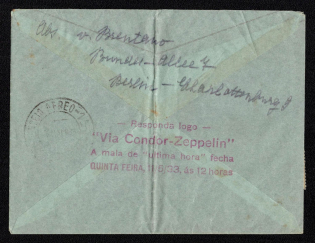 Abs. v. Brentano
Berlin - Charlottenburg 9
— Responda logo —
"Via Condor-Zeppelin"
A mala de "ultima hora" fecha
QUINTA FEIRA, ás 12 horas